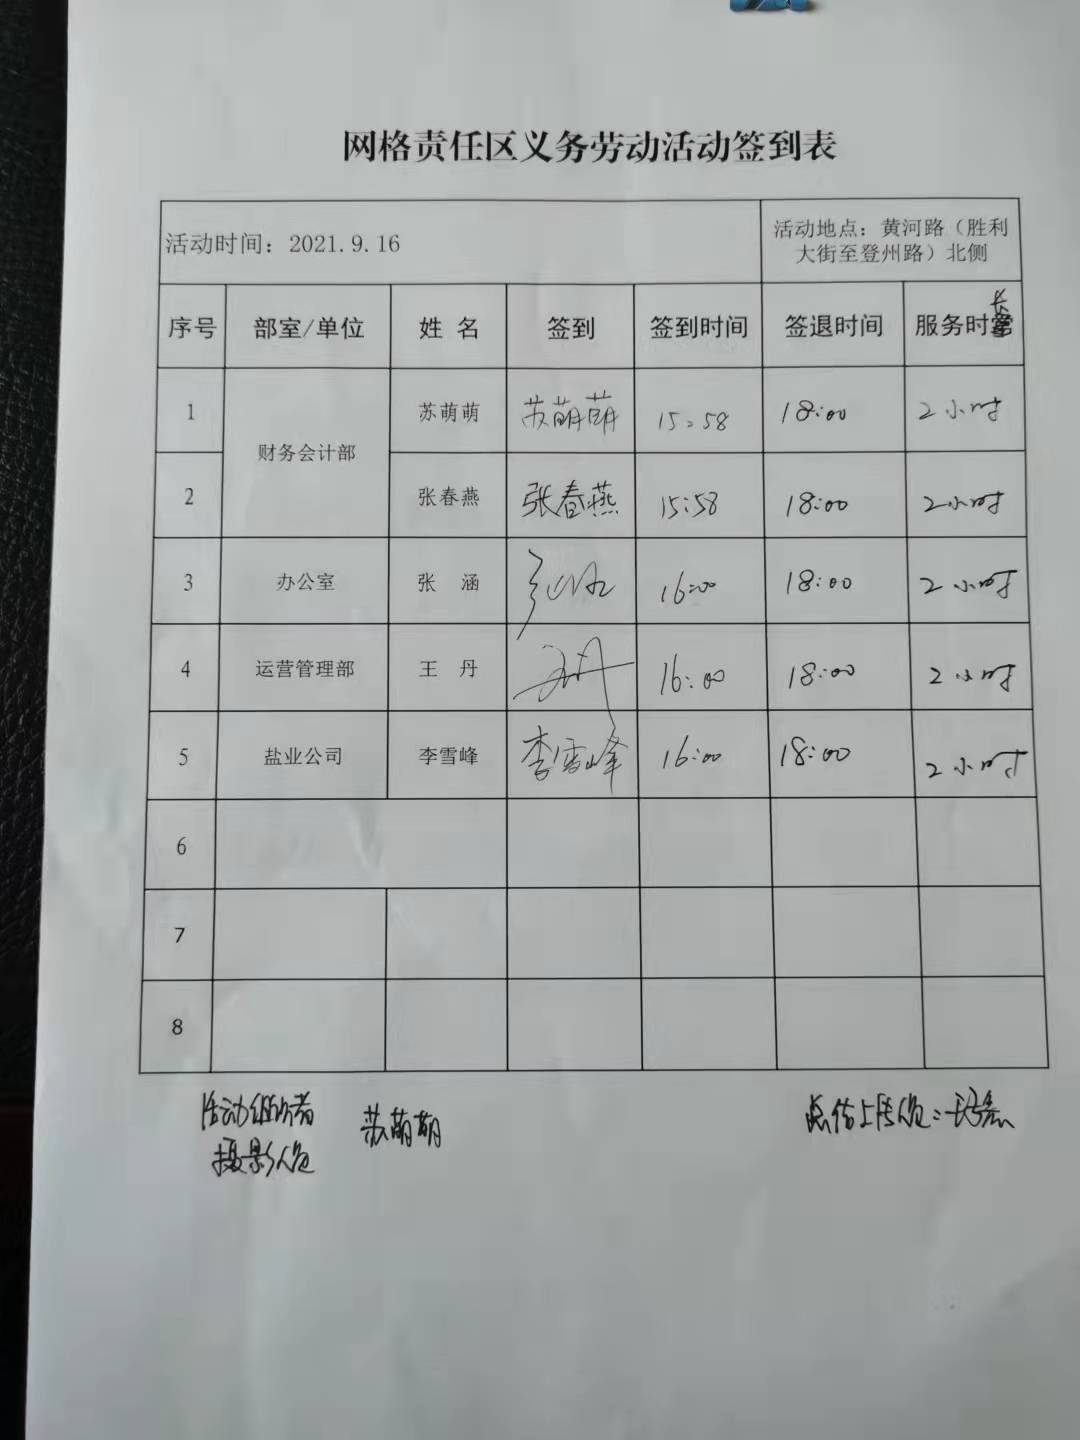 网格责任区义务劳动活动签到表
活动时间：2021.9.16
活动地点：黄河路（胜利
大街至登州路）北侧
序号 部室/单位 姓 名 签到 签到时间 签退时间 服务时长
1 财务会计部 苏萌萌 苏萌萌 15:58 18:00 2小时
2 张春燕 张春燕 15:58 18:00 2小时
3 办公室 张 涵 16:00 18:00 2小时
4 运营管理部 王 丹 王丹 16:00 18:00 2小时
5 盐业公司 李雪峰 李雪峰 16:00 18:00 2小时
6
7
8
活动组织者
摄影人员
苏萌萌
总结上传人员：